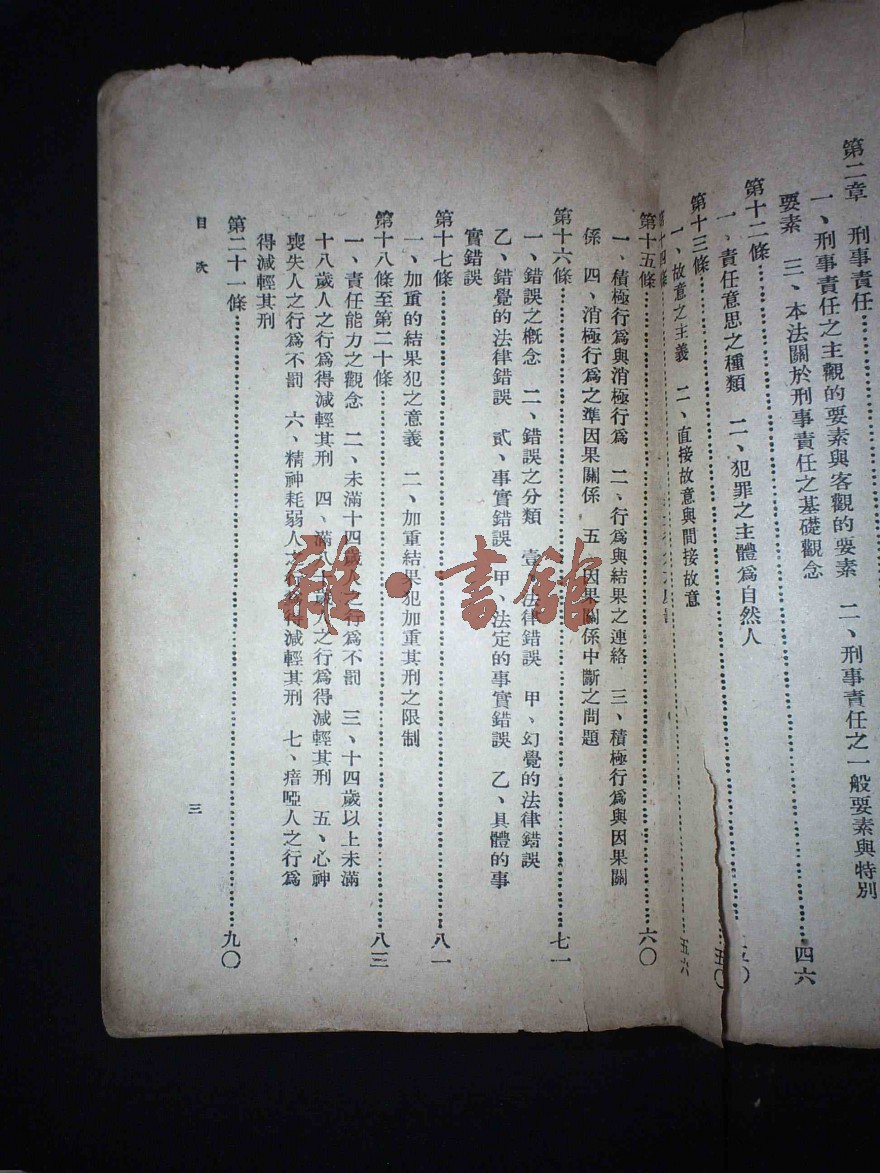 第二章　刑事責任……四六
一、刑事責任之主觀的要素與客觀的要素　二、刑事責任之一般要素與特別
要素　三、本法關於刑事責任之基礎觀念
第十二條……〇
一、責任意思之種類　二、犯罪之主體爲自然人
第十三條……五〇
一、故意之主義　二、直接故意與間接故意
第十四條……五六
第十五條……六〇
一、積極行爲與消極行爲　二、行爲與結果之連絡　三、積極行爲與因果關
係　四、消極行爲之準因果關係　五、因果關係中斷之問題
第十六條……七一
一、錯誤之概念　二、錯誤之分類　壹、法律錯誤　甲、幻覺的法律錯誤
乙、錯覺的法律錯誤　貳、事實錯誤　甲、法定的事實錯誤　乙、具體的事
實錯誤
第十七條……八一
一、加重的結果犯之意義　二、加重結果犯加重其刑之限制
第十八條至第二十條……八三
一、責任能力之觀念　二、未滿十四歲人之行爲不罰　三、十四歲以上未滿
十八歲人之行爲得減輕其刑　四、滿八十歲人之行爲得減輕其刑　五、心神
喪失人之行爲不罰　六、精神耗弱人之行爲得減輕其刑　七、瘖啞人之行爲
得減輕其刑
第二十一條……九〇
目次
三
雜·書館